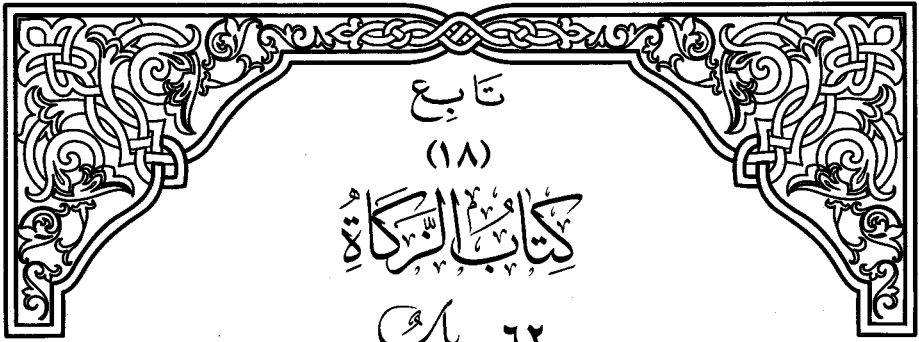 تَابِع
(١٨)
كِتَابُ الزَّكَاةِ
٦٢ - بابٌ